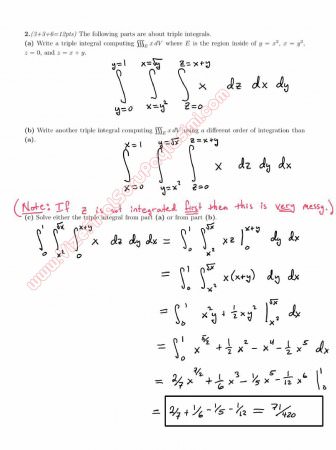 2.(3+3+6=12pts) The following parts are about triple integrals.
(a) Write a triple integral computing ∭_E x dV where E is the region inside of y = x², x = y²,
z = 0, and z = x + y.
y=1 x=√y z=x+y
∫ ∫ ∫ x dz dx dy
y=0 x=y² z=0
(b) Write another triple integral computing ∭_E x dV using a different order of integration than
(a).
x=1 y=√x z=x+y
∫ ∫ ∫ x dz dy dx
x=0 y=x² z=0
(Note: If z is not integrated first then this is very messy.)
(c) Solve either the triple integral from part (a) or from part (b).
∫₀¹ ∫_{x²}^{√x} ∫₀^{x+y} x dz dy dx = ∫₀¹ ∫_{x²}^{√x} xz |₀^{x+y} dy dx
= ∫₀¹ ∫_{x²}^{√x} x(x+y) dy dx
= ∫₀¹ x²y + ½xy² |_{x²}^{√x} dx
= ∫₀¹ x^{5/2} + ½x² − x⁴ − ½x⁵ dx
= 2/7 x^{7/2} + 1/6 x³ − 1/5 x⁵ − 1/12 x⁶ |₀¹
= 2/7 + 1/6 − 1/5 − 1/12 = 71/420